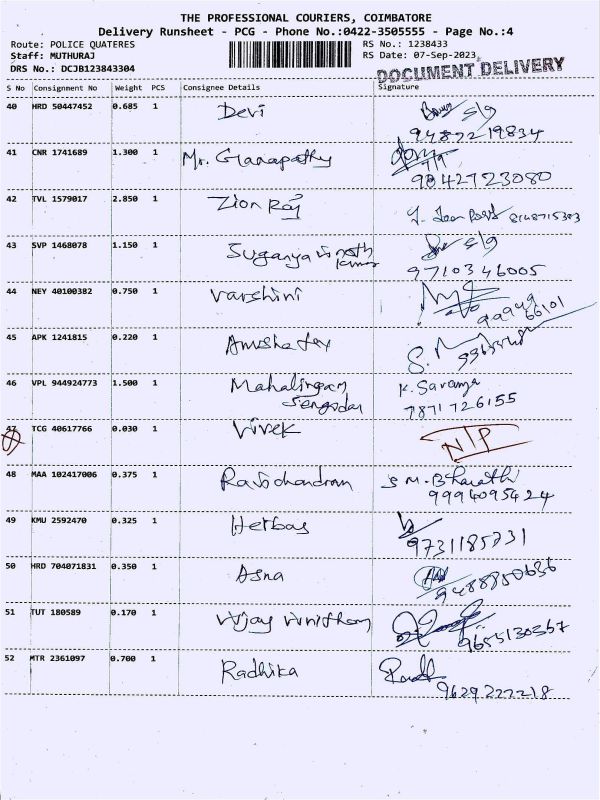 THE PROFESSIONAL COURIERS, COIMBATORE
Delivery Runsheet - PCG - Phone No.:0422-3505555 - Page No.:4
Route: POLICE QUATERES RS No.: 1238433
Staff: MUTHURAJ RS Date: 07-Sep-2023
DRS No.: DCJB123843304
DOCUMENT DELIVERY
S No Consignment No Weight PCS Consignee Details Signature
40 HRD 50447452 0.685 1 Devi s/g
9487219834
41 CNR 1741689 1.300 1 Mr. Ganapathy
9842723080
42 TVL 1579017 2.850 1 Zion Raj
43 SVP 1468078 1.150 1 Suganya vinoth s/g
kumar 9710346005
44 NEY 40100382 0.750 1 Varshini
66101
45 APK 1241815 0.220 1 Anusha
46 VPL 944924773 1.500 1 Mahalingam K. Saranya
7871726155
47 TCG 40617766 0.030 1 Vivek N/P
48 MAA 102417006 0.375 1 Ravichandran S M. Bharathi
9994095424
49 KMU 2592470 0.325 1 Herbas
9731185731
50 HRD 704071831 0.350 1 Asna
9488850636
51 TUT 180589 0.170 1 Vijay
9655130367
52 MTR 2361097 0.700 1 Radhika
9629222218